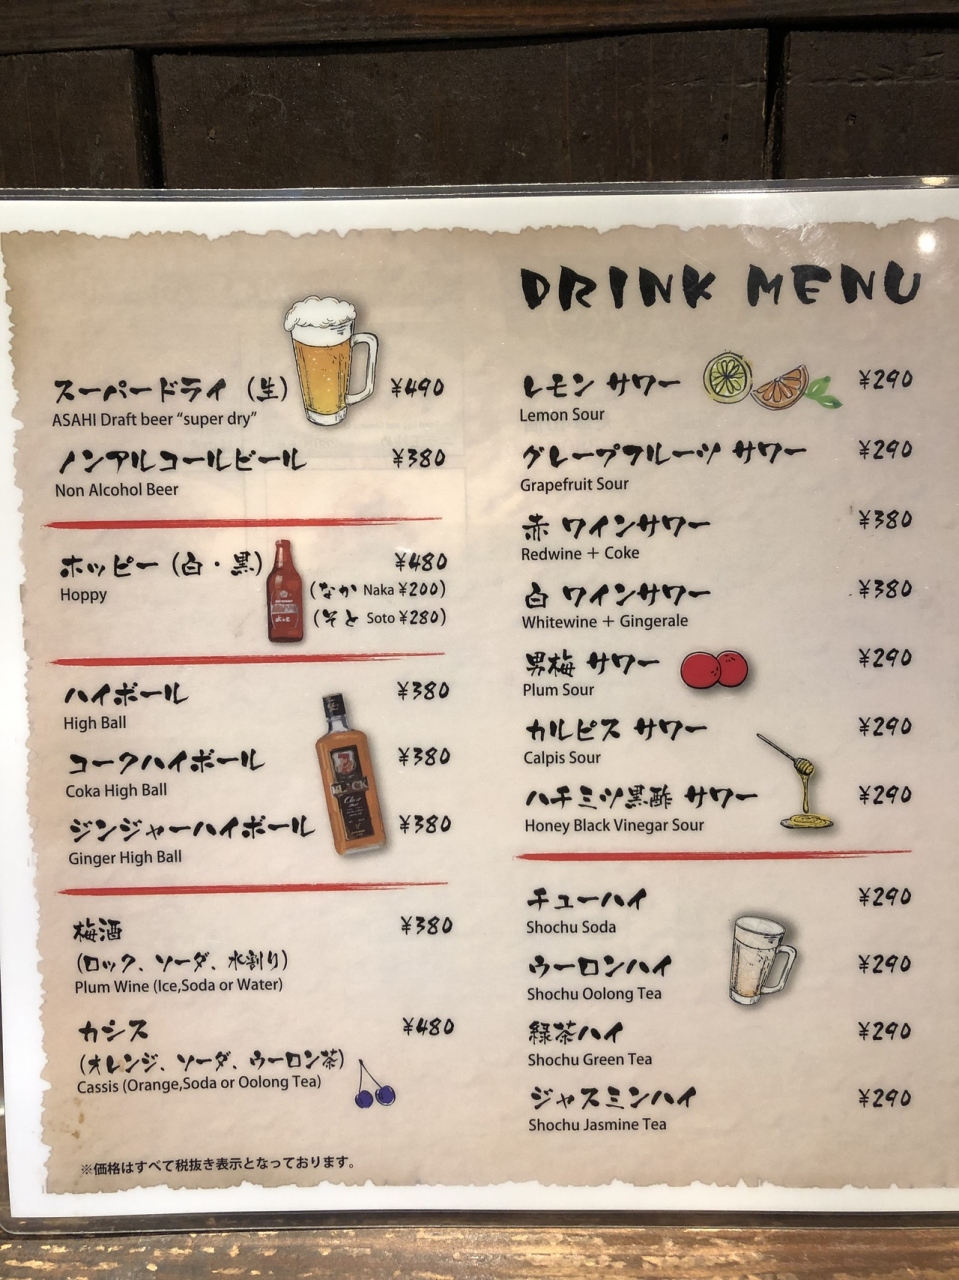 DRINK MENU
スーパードライ（生） ¥490
ASAHI Draft beer “super dry”
ノンアルコールビール ¥380
Non Alcohol Beer
ホッピー（白・黒） ¥480
Hoppy
(なか Naka ¥200)
(そと Soto ¥280)
ハイボール ¥380
High Ball
コークハイボール ¥380
Coka High Ball
ジンジャーハイボール ¥380
Ginger High Ball
BLACK
梅酒 ¥380
(ロック、ソーダ、水割り)
Plum Wine (Ice,Soda or Water)
カシス ¥480
(オレンジ、ソーダ、ウーロン茶)
Cassis (Orange,Soda or Oolong Tea)
※価格はすべて税抜き表示となっております。
レモン サワー ¥290
Lemon Sour
グレープフルーツ サワー ¥290
Grapefruit Sour
赤 ワインサワー ¥380
Redwine + Coke
白 ワインサワー ¥380
Whitewine + Gingerale
男梅 サワー ¥290
Plum Sour
カルピス サワー ¥290
Calpis Sour
ハチミツ黒酢 サワー ¥290
Honey Black Vinegar Sour
チューハイ ¥290
Shochu Soda
ウーロンハイ ¥290
Shochu Oolong Tea
緑茶ハイ ¥290
Shochu Green Tea
ジャスミンハイ ¥290
Shochu Jasmine Tea